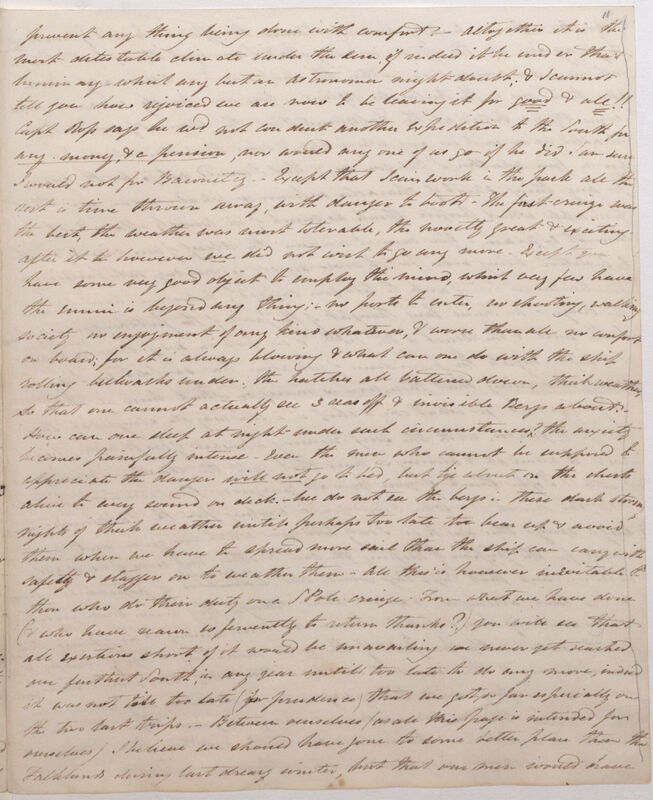 11
prevent any thing being done with comfort. – altogether it is the
most detestable climate under the sun, if indeed it be under that
luminary which any but an astronomer might doubt, & I cannot
tell you how rejoiced we are now to be leaving it for good & all!!
Capt Ross says he wd not conduct another Expedition to the South for
any money & a pension, nor would any one of us go if he did; I am sure
I would not for a Baronetcy – Except that I can work in the pack all the
rest is time thrown away, with danger to boot – The first cruize was
the best, the weather was most tolerable, the novelty great & exciting
after it however we did not wish to go any more. Except you
have some very good object to employ the mind, which very few have
the ennui is beyond any thing; – no ports to enter, no shooting, walking
society no enjoyment of any kind whatever, & worse than all no comfort
on board; for it is always blowing & what can one do with the ship
rolling bulwarks under, the hatches all battened down, thick weather
so that one cannot actually see 3 seas off & invisible Bergs about. –
How can one sleep at night under such circumstances? the anxiety
becomes painfully intense – Even the men who cannot be supposed to
appreciate the danger will not go to bed, but lye about on the chests
alive to every sound on deck. – We do not see the bergs in these dark stormy
nights of thick weather untill perhaps too late to bear up & avoid
them when we have to spread more sail than the ship can carry with
safety & stagger on to weather them – All this is however inevitable to
those who do their duty on a S Pole cruize. From what we have done
(& who have reason so fervently to return thanks?) you will see that
all exertions short of it would be unavailing we never yet reached
our furthest South in any year untill too late to do any more, indeed
it was not till too late (for prudence) that we got so far especially on
the two last trips. – Between ourselves (as all this page is intended for
ourselves) I believe we should have gone to some better place than the
Falklands during last dreary winter, but that our men would have